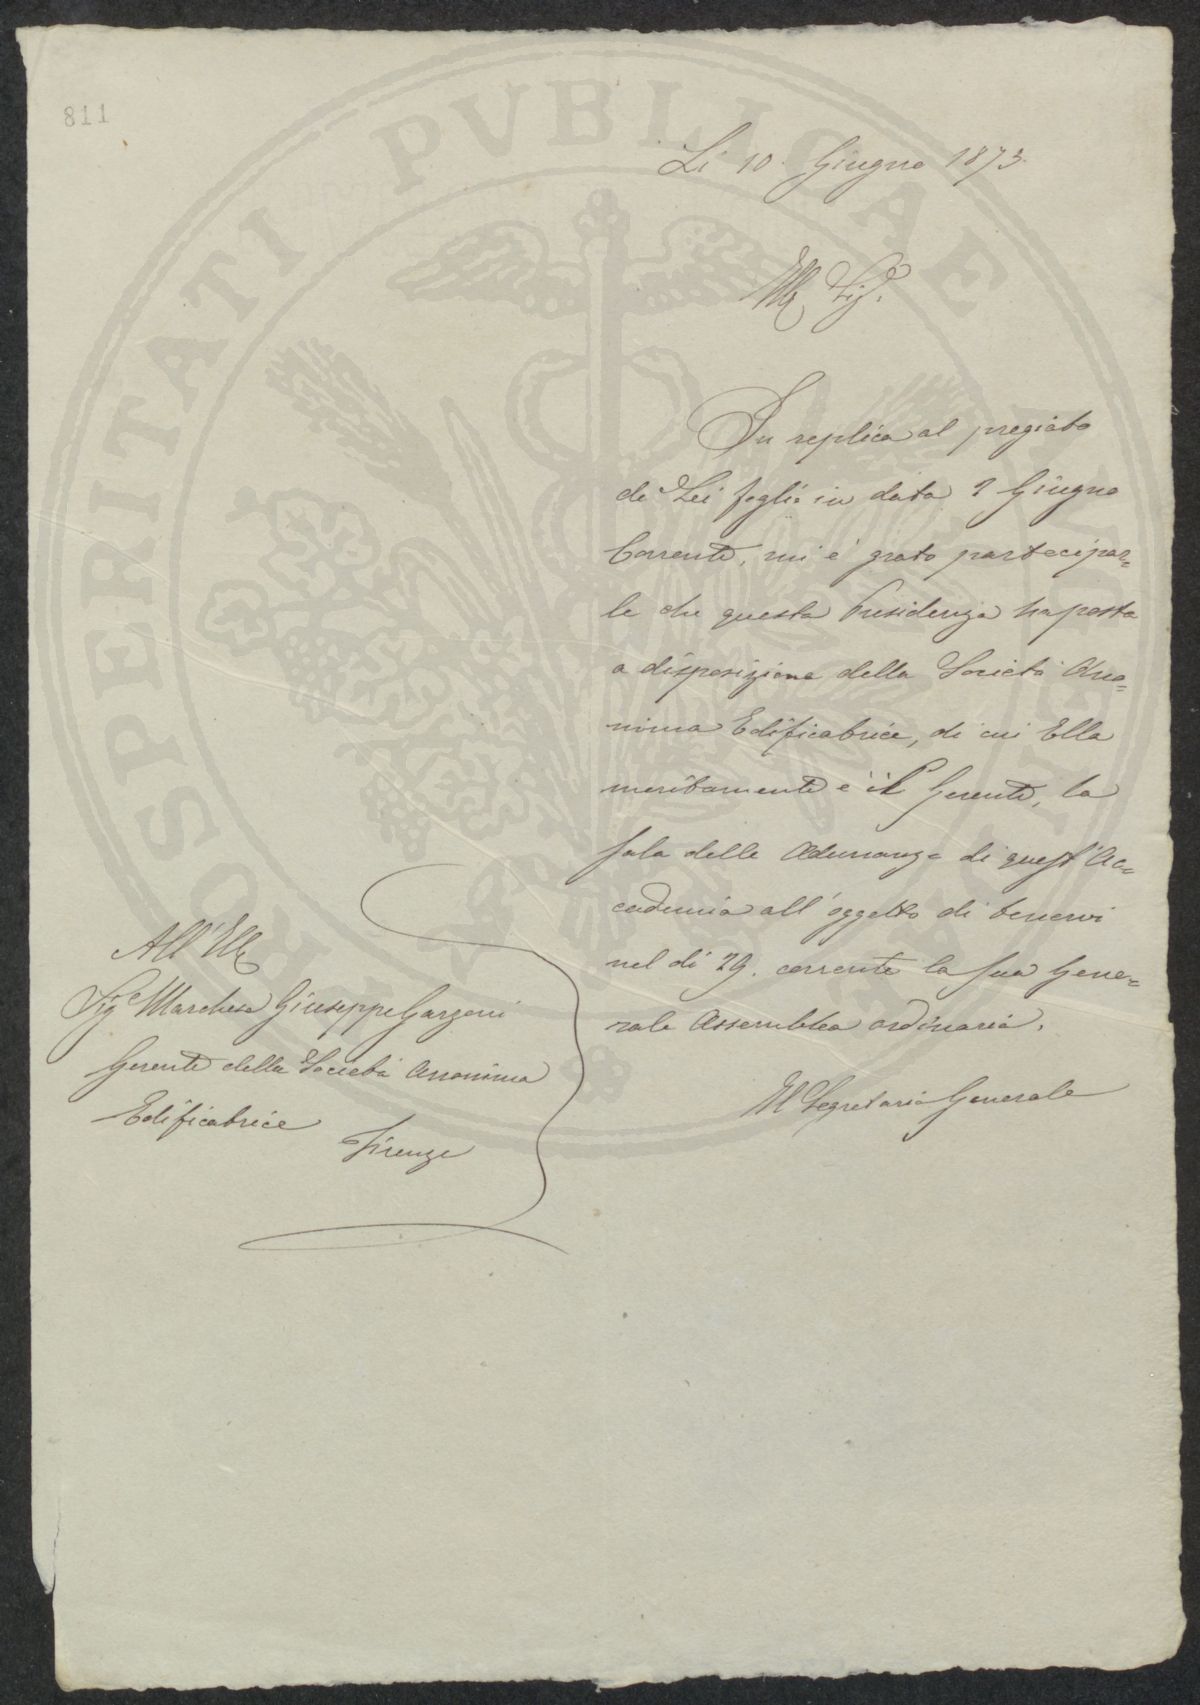 811
PROSPERITATI PVBLICAE AVGENDAE
Li 10. Giugno 1873.
Ill. Sig.
In replica al pregiato
di Lei foglio in data 2 Giugno
Corrente, mi è grato partecipar=
le che questa Presidenza ha posta
a disposizione della Società Ano=
nima Edificatrice, di cui Ella
meritamente è il Gerente, la
Sala delle Adunanze di quest'Ac=
cademia all'oggetto di tenervi
nel dì 29. corrente la sua Gene=
rale Assemblea ordinaria.
Il Segretario Generale
All'Ill
Sig.e Marchese Giuseppe Garzoni
Gerente della Società Anonima
Edificatrice
Firenze